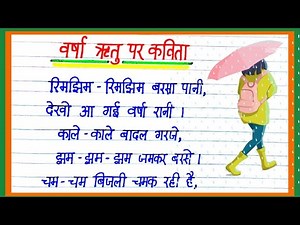 वर्षा ऋतु पर कविता
रिमझिम - रिमझिम बरसा पानी,
देखो आ गई वर्षा रानी ।
काले - काले बादल गरजे,
झम - झम - झम जमकर बरसे ।
चम - चम बिजली चमक रही है,